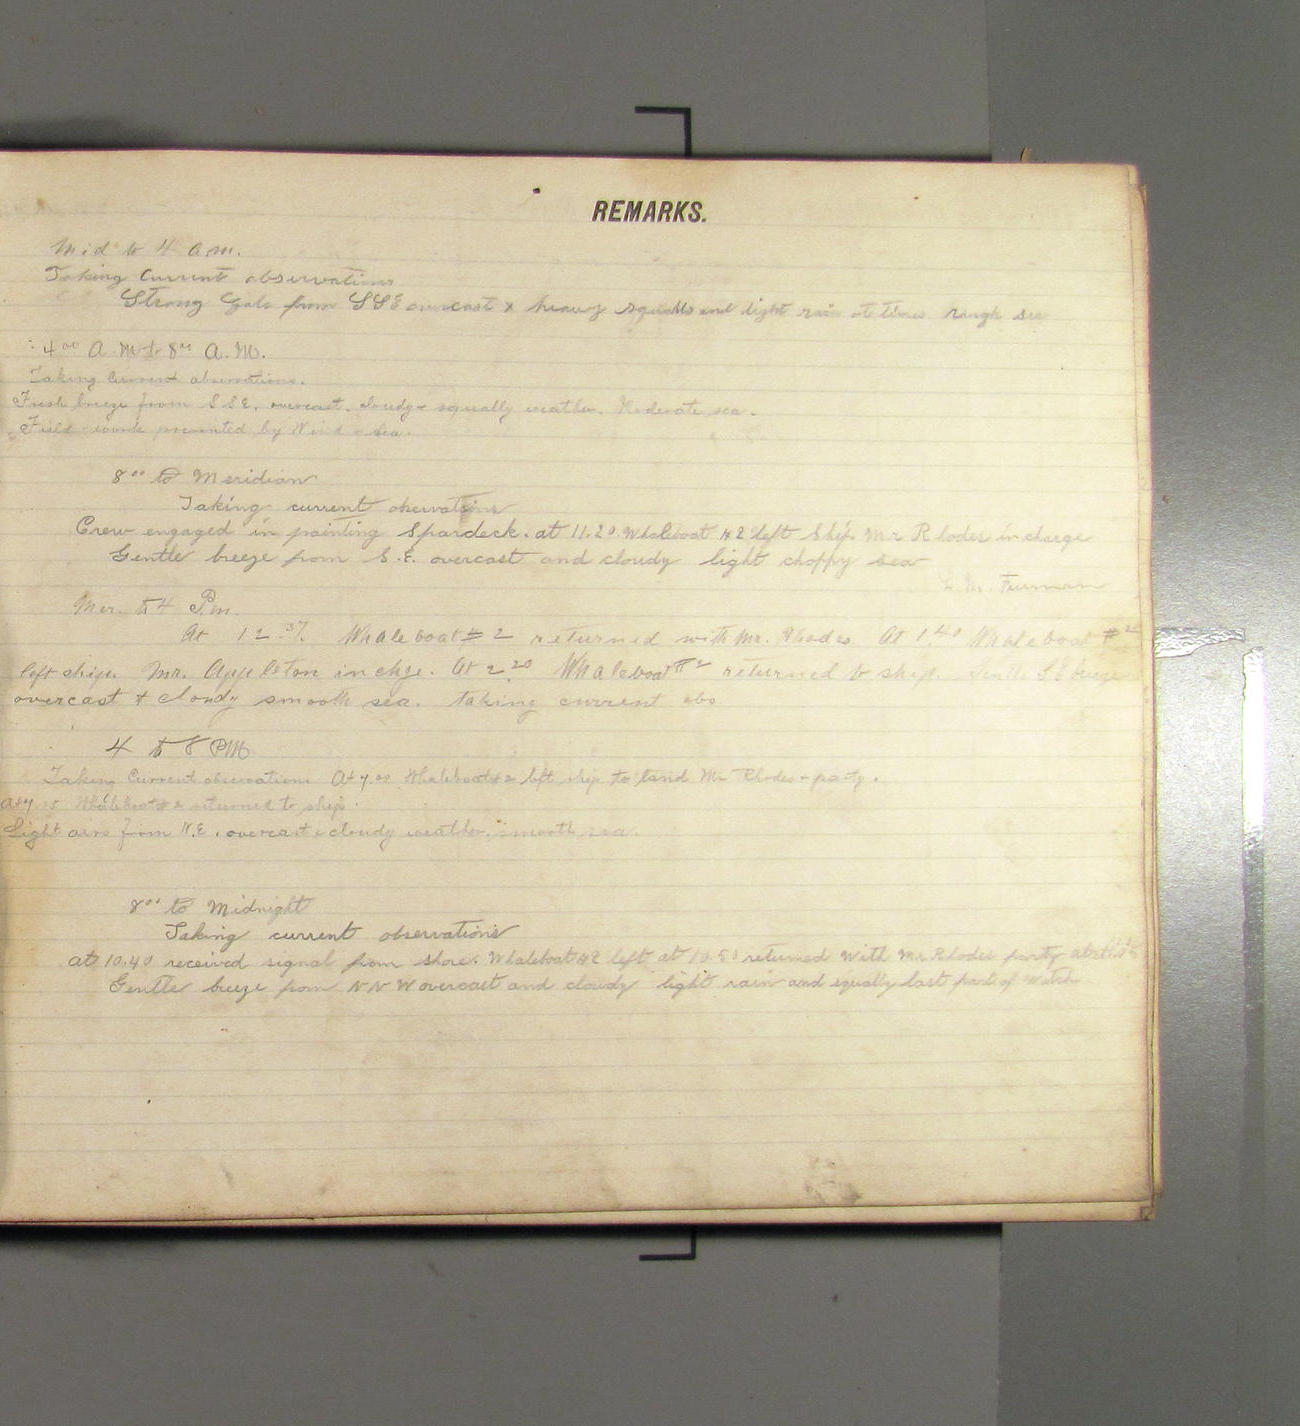 REMARKS.
Mid to 4 a.m.
Taking Current observations
Strong Gale from SSE overcast & heavy squalls and light rain at times rough sea
4⁰⁰ A.M. to 8⁰⁰ A.M.
Taking Current observations.
Fresh breeze from SSE. overcast. cloudy & squally weather. Moderate sea.
Field work prevented by Wind & Sea.
8⁰⁰ to Meridian
Taking current observations
Crew engaged in painting Spardeck. at 11.20. Whaleboat #2 left Ship Mr Rhodes in charge
Gentle breeze from S.E. overcast and cloudy light choppy sea
Mer. to 4 P.m.
At 12.³⁷ Whaleboat #2 returned with Mr. Rhodes At 1.⁴⁰ Whaleboat #2
left ship. Mr. Appleton in chge. At 2.²⁰ Whaleboat #2 returned to ship. Gentle S.E breeze
overcast & cloudy smooth sea. taking current obs
4 to 8 PM
Taking Current observations At 7.00 Whaleboat #2 left ship to land Mr Rhodes & party.
At 7.15 Whaleboat #2 returned to ship.
Light airs from N.E. overcast & cloudy weather. smooth sea.
8⁰⁰ to Midnight
Taking current observations
at 10.40 received signal from shore. Whaleboat #2 left at 10.50 returned with Mr Rhodes party at
Gentle breeze from NNW overcast and cloudy light rain and squally last part of Watch